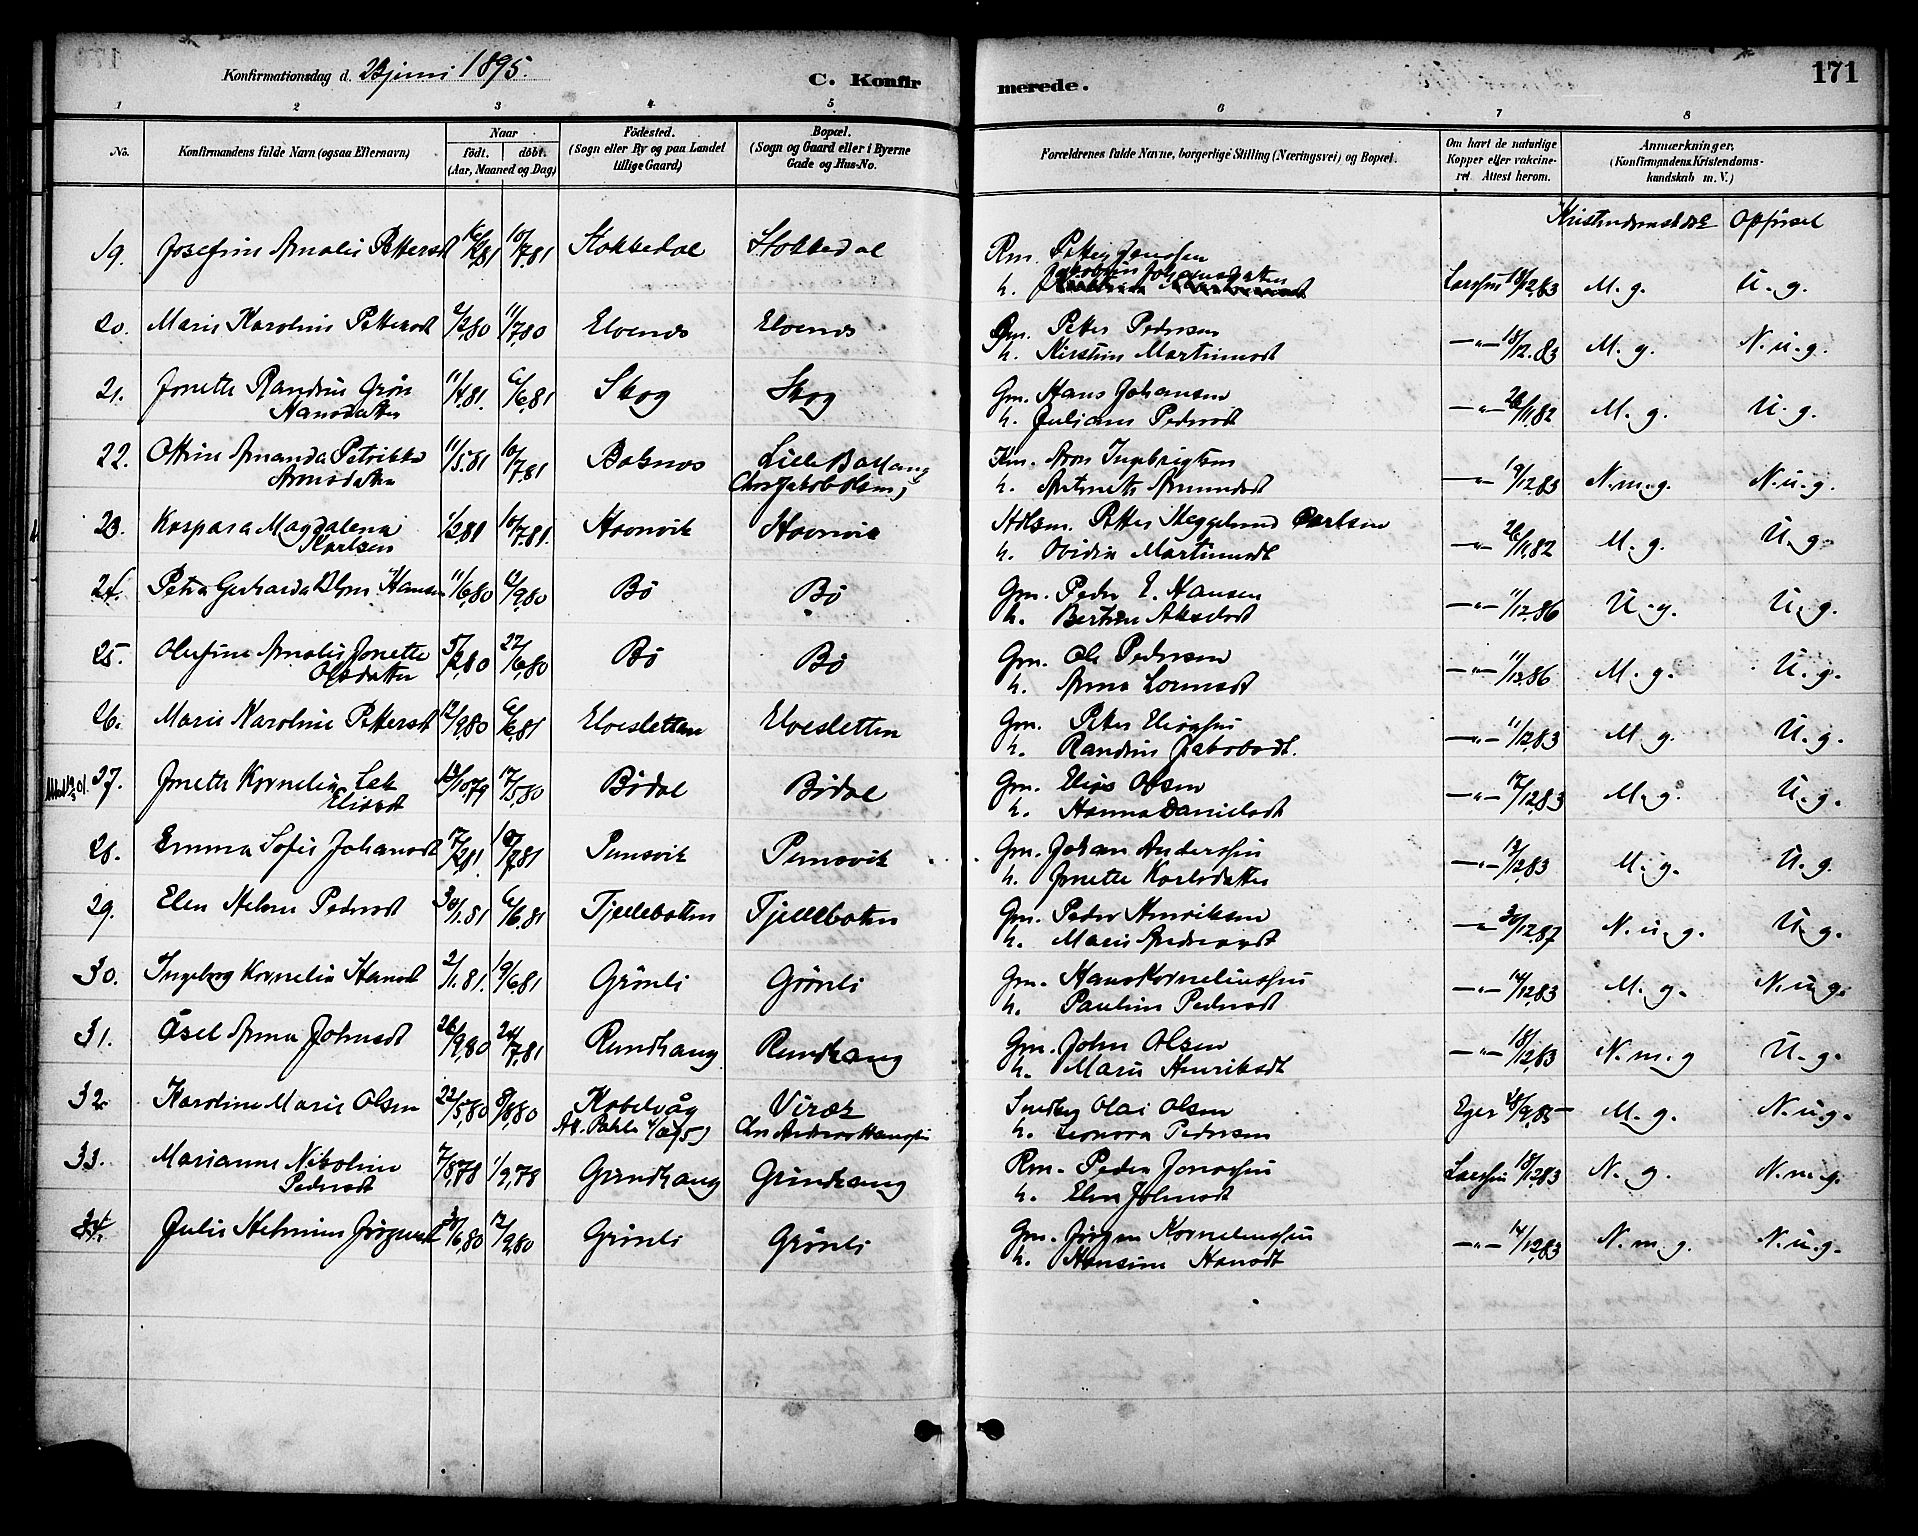 Konfirmationsdag d. 23 juni 1895.
C. Konfirmerede.
171
1 2 3 4 5 6 7 8
No.
Konfirmandens fulde Navn (ogsaa Efternavn)
Naar
födt. döbt.
(Aar, Maaned og Dag)
Födested.
(Sogn eller By og paa Landet
tillige Gaard)
Bopæl.
(Sogn og Gaard eller i Byerne
Gade og Hus-No.
Forældrenes fulde Navne, borgerlige Stilling (Næringsvei) og Bopæl.
Om havt de naturlige
Kopper eller vakcine-
ret. Attest herom.
Anmærkninger.
(Konfirmandens Kristendoms-
kundskab m. V.)
Opførsel
19. Josefine Amalie Petters 10/7.81 Stokkedal Stokkedal
Rm. Petter Jenssen
h. Jakobine Johansdatter
Larssen 18/12.83 M. g. U. g.
20. Marie Karoline Pettersdt 2/2.80 11/7.80 Elvenes Elvenes
Gm. Petter Pedersen
h. Kirstine Martinusdt
—"— 18/12.83 M. g. N. u. g.
21. Jonette Randine Grøn
Hansdatter
11/4.81. 6/6.81 Skog Skog
Gm. Hans Johansen
h. Juliane Pedersdt
—"— 26/11.82 M. g. U. g.
22. Ottine Amanda Petrikke
Aronsdatter
11/5.81 10/7.81 Balsnes Lille Ballang
Chr. Jakob Olsen)
Km. Aron Ingebrigtsen
h.
—"— 19/12.83 N. m. g. N. u. g.
23. Kaspara Magdalena
Karlsen
1/2.81 10/7.81. Stovnvik Stovnvik
Petter Meggelund Carlsen
h. Ovidia Martinusdt
—"— 26/11.82 M. g. U. g.
24. Petra Gerharda Blom Hansen 11/6.80 12/9.80 Bø Bø
Gm. Peder E. Hansen
h. Bertine Akseldt
—"— 11/12.86 U. g. U. g.
25. Olufine Amalie Jonette
Olsdatter
5/2.80 27/6.80 Bø Bø
Gm. Ole Pedersen
h. Anna
—"— 11/12.86 M. g. U. g.
26. Marie Karoline Pettersdt 12/9.80 6/6.81 Elvesletten Elvesletten
Gm. Petter Eliassen
h. Randine Jakobsdt.
—"— 11/12.83 M. g. U. g.
27. Jonette Kornelia
Eliasdt
13/10.79 17/5.80 Bødal Bødal
Gm. Elias Olsen
h. Hanna Danielsdt
—"— 17/12.83 M. g. U. g.
28. Emma Sofie Johansdt 17/2.81. 10/7.81 Pumsvik Pumsvik
Gm. Johan Anderssen
h. Jonette Karlsdatter
—"— 12/12.83 M. g. U. g.
29. Elen Helene Pedersdt 30/1.81 6/6.81 Tjellebotten Tjellebotten
Gm. Peder Henriksen
h. Marie Andreasdt
—"— 30/12.87 N. u. g. U. g.
30. Ingeborg Kornelia Hansdt 2/1.81. 19/6.81 Grönli Grönli
Gm. Hans Korneliussen
h. Pauline Pedersdt
—"— 14/12.83 M. g. N. u. g.
31. Åsel Anna Johnsdt 26/9.80 24/7.81 Rundhaug Rundhaug
Gm. John Olsen
h. Marie Henriksdt
—"— 18/12.83 N. m. g U. g.
32. Karoline Marie Olsen 22/5.80 8/8.80 Kabelvåg Virak
Chr. Andreas Hanssen
Olai Olsen
h. Leonora Pedersen
Eger 28/9.85— M. g. N. u. g.
33. Marianne Nikoline
Pedersdt
7/8.78 1/9.78 Grundhaug Grundhaug
Rm. Peder Jonassen
h. Elen Johnsdt
Larssen 18/12.83 N. g. N. m. g.
34. Julie Helmine Jørgensdt 30/6.80 12/9.80 Grönli Grönli
Gm. Jörgen Korneliussen
h. Hansine Hansdt
—"— 14/12.83 N. m. g. N. u. g.